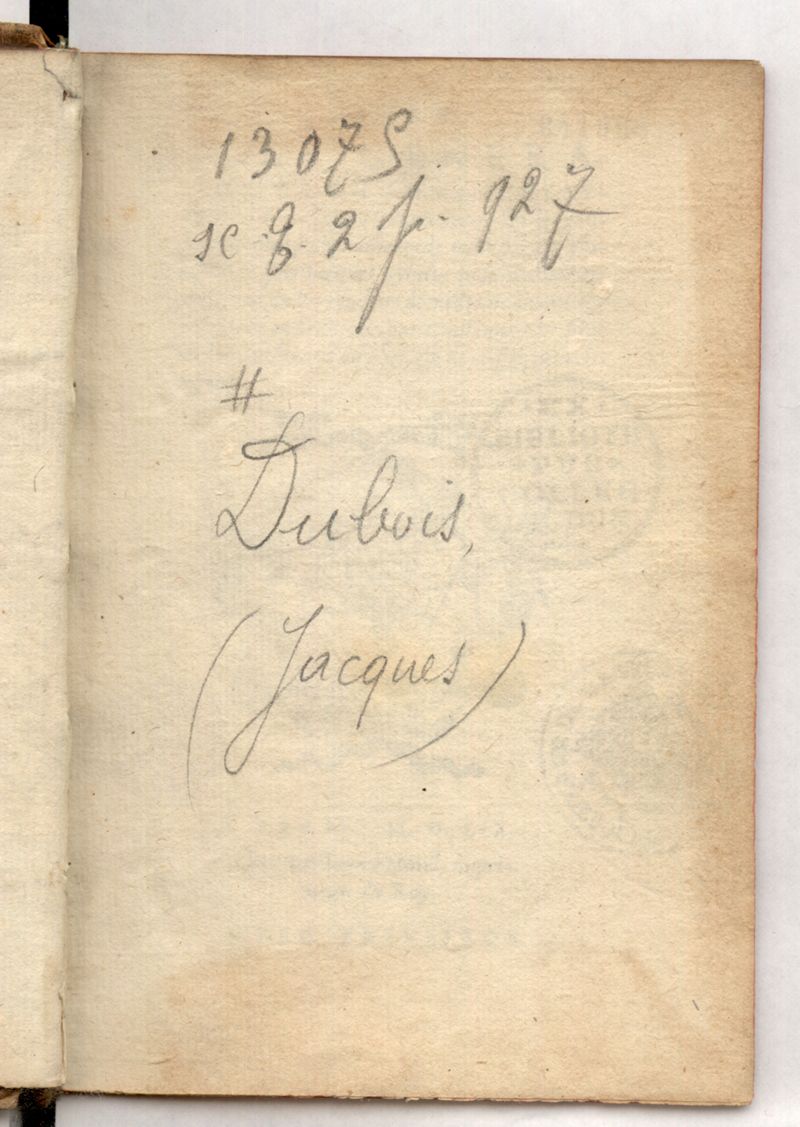 13075
sc. g. 2 p. 927
#
Dubois,
(Jacques)